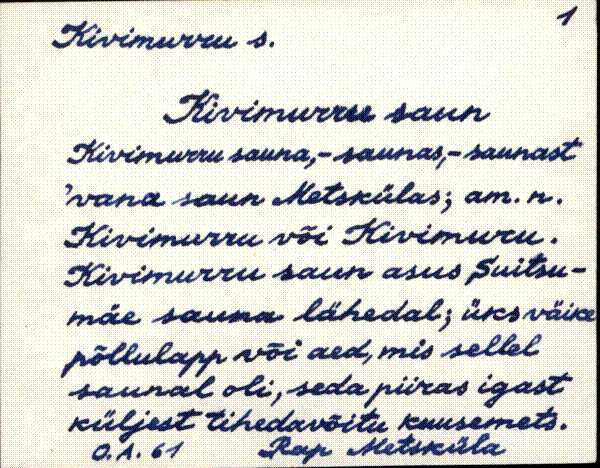 1
Kivimurru s.
Kivimurru saun
Kivimurru sauna,-saunas,-saunast
'vana saun Metskülas; am. n.
Kivimurru või Kivimuru.
Kivimurru saun asus Suitsu-
mäe sauna lähedal; üks väike
põllulapp või aed, mis sellel
saunal oli, seda piiras igast
küljest tihedavõitu kuusemets.
O.A. 61 Rap Metsküla